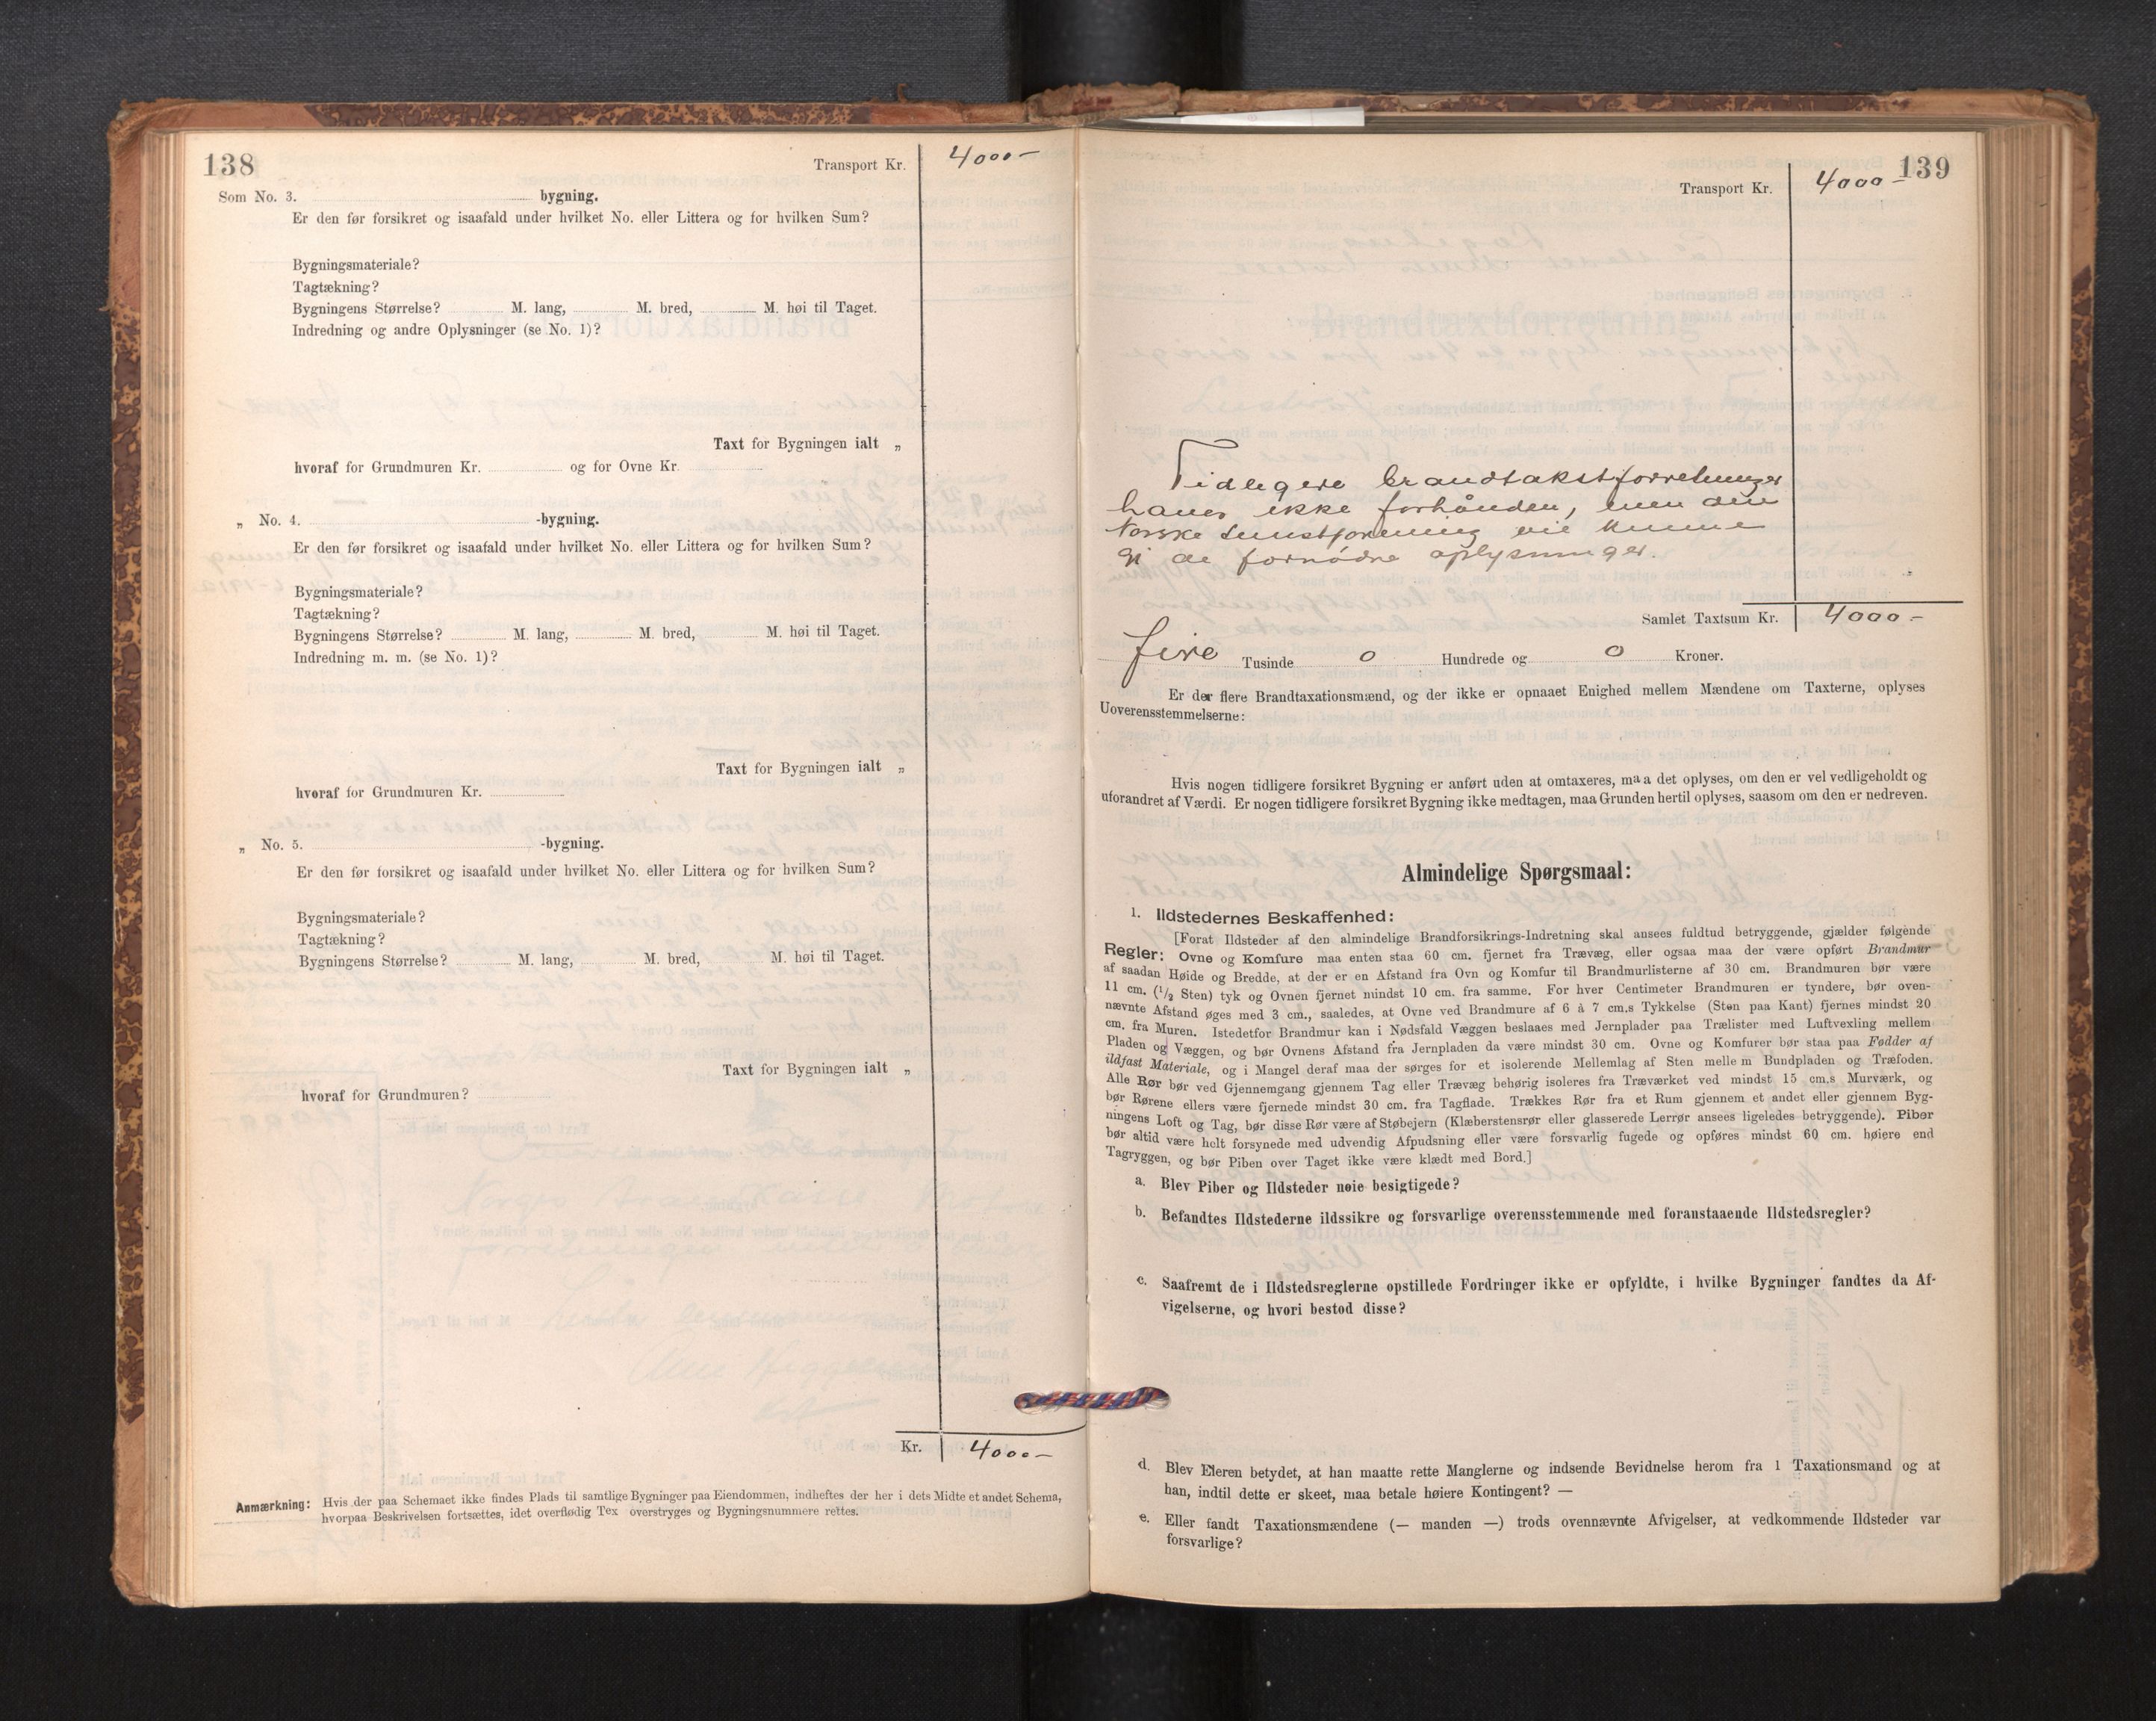 138
Transport Kr. 4000-
Som No. 3. bygning.
Er den før forsikret og isaafald under hvilket No. eller Littera og for hvilken Sum?
Bygningsmateriale?
Tagtækning?
Bygningens Størrelse? M. lang, M. bred, M. høi til Taget.
Indredning og andre Oplysninger (se No. 1)?
Taxt for Bygningen ialt „
hvoraf for Grundmuren Kr. og for Ovne Kr.
„ No. 4. -bygning.
Er den før forsikret og isaafald under hvilket No. eller Littera og for hvilken Sum?
Bygningsmateriale?
Tagtækning?
Bygningens Størrelse? M. lang, M. bred, M. høi til Taget.
Indredning m. m. (se No. 1)?
Taxt for Bygningen ialt „
hvoraf for Grundmuren Kr.
„ No. 5. -bygning.
Er den før forsikret og isaafald under hvilket No. eller Littera og for hvilken Sum?
Bygningsmateriale?
Tagtækning?
Bygningens Størrelse? M. lang, M. bred, M. høi til Taget.
Taxt for Bygningen ialt „
hvoraf for Grundmuren?
Kr. 4000-
Anmærkning: Hvis der paa Schemaet ikke findes Plads til samtlige Bygninger paa Eiendommen, indheftes der her i dets Midte et andet Schema,
hvorpaa Beskrivelsen fortsættes, idet overflødig Tex overstryges og Bygningsnummere rettes.
139
Transport Kr. 4000-
Tidligere brandtakstforretninger
haves ikke forhånden, men den
Norske kunstforening vil kunne
gi de fornødne oplysninger.
Samlet Taxtsum Kr. 4000-
fire Tusinde 0 Hundrede og 0 Kroner.
Er der flere Brandtaxationsmænd, og der ikke er opnaaet Enighed mellem Mændene om Taxterne, oplyses
Uoverensstemmelserne:
Hvis nogen tidligere forsikret Bygning er anført uden at omtaxeres, maa det oplyses, om den er vel vedligeholdt og
uforandret af Værdi. Er nogen tidligere forsikret Bygning ikke medtagen, maa Grunden hertil oplyses, saasom om den er nedreven.
Almindelige Spørgsmaal:
1. Ildstedernes Beskaffenhed:
[Forat Ildsteder af den almindelige Brandforsikrings-Indretning skal ansees fuldtud betryggende, gjælder følgende
Regler: Ovne og Komfure maa enten staa 60 cm. fjernet fra Trævæg, eller ogsaa maa der være opført Brandmur
af saadan Høide og Bredde, at der er en Afstand fra Ovn og Komfur til Brandmurlisterne af 30 cm. Brandmuren bør være
11 cm. (1/2 Sten) tyk og Ovnen fjernet mindst 10 cm. fra samme. For hver Centimeter Brandmuren er tyndere, bør oven-
nævnte Afstand øges med 3 cm., saaledes, at Ovne ved Brandmure af 6 à 7 cm.s Tykkelse (Sten paa Kant) fjernes mindst 20
cm. fra Muren. Istedetfor Brandmur kan i Nødsfald Væggen beslaaes med Jernplader paa Trælister med Luftvexling mellem
Pladen og Væggen, og bør Ovnens Afstand fra Jernpladen da være mindst 30 cm. Ovne og Komfurer bør staa paa Fødder af
ildfast Materiale, og i Mangel deraf maa der sørges for et isolerende Mellemlag af Sten mellem Bundpladen og Træfoden.
Alle Rør bør ved Gjennemgang gjennem Tag eller Trævæg behørig isoleres fra Træværket ved mindst 15 cm.s Murværk, og
bør Rørene ellers være fjernede mindst 30 cm. fra Tagflade. Trækkes Rør fra et Rum gjennem et andet eller gjennem Byg-
ningens Loft og Tag, bør disse Rør være af Støbejern (Klæberstensrør eller glasserede Lerrør ansees ligeledes betryggende). Piber
bør altid være helt forsynede med udvendig Afpudsning eller være forsvarlig fugede og opføres mindst 60 cm. høiere end
Tagryggen, og bør Piben over Taget ikke være klædt med Bord.]
a. Blev Piber og Ildsteder nøie besigtigede?
b. Befandtes Ildstederne ildssikre og forsvarlige overensstemmende med foranstaaende Ildstedsregler?
c. Saafremt de i Ildstedsreglerne opstillede Fordringer ikke er opfyldte, i hvilke Bygninger fandtes da Af-
vigelserne, og hvori bestod disse?
d. Blev Eieren betydet, at han maatte rette Manglerne og indsende Bevidnelse herom fra 1 Taxationsmand og at
han, indtil dette er skeet, maa betale høiere Kontingent? —
e. Eller fandt Taxationsmændene (— manden —) trods ovennævnte Afvigelser, at vedkommende Ildsteder var
forsvarlige?